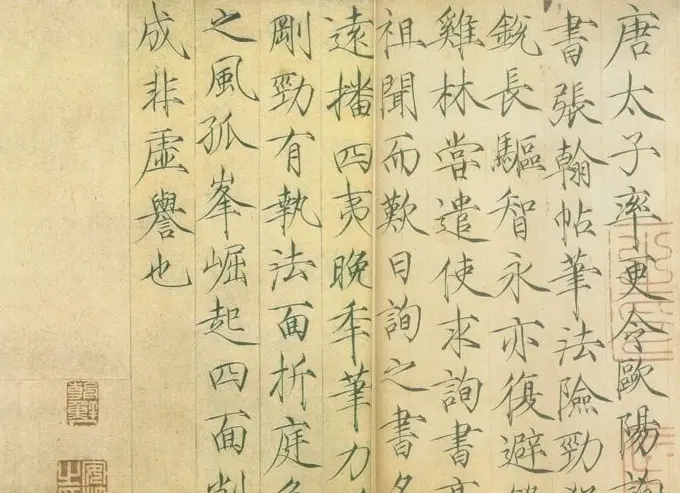 唐太子率更令歐陽詢
書張翰帖筆法險勁
銳長驅智永亦復避
雞林嘗遣使求詢書
祖聞而歎曰詢之書
遠播四夷晚年筆力
剛勁有執法面折庭
之風孤峯崛起四面削
成非虛譽也